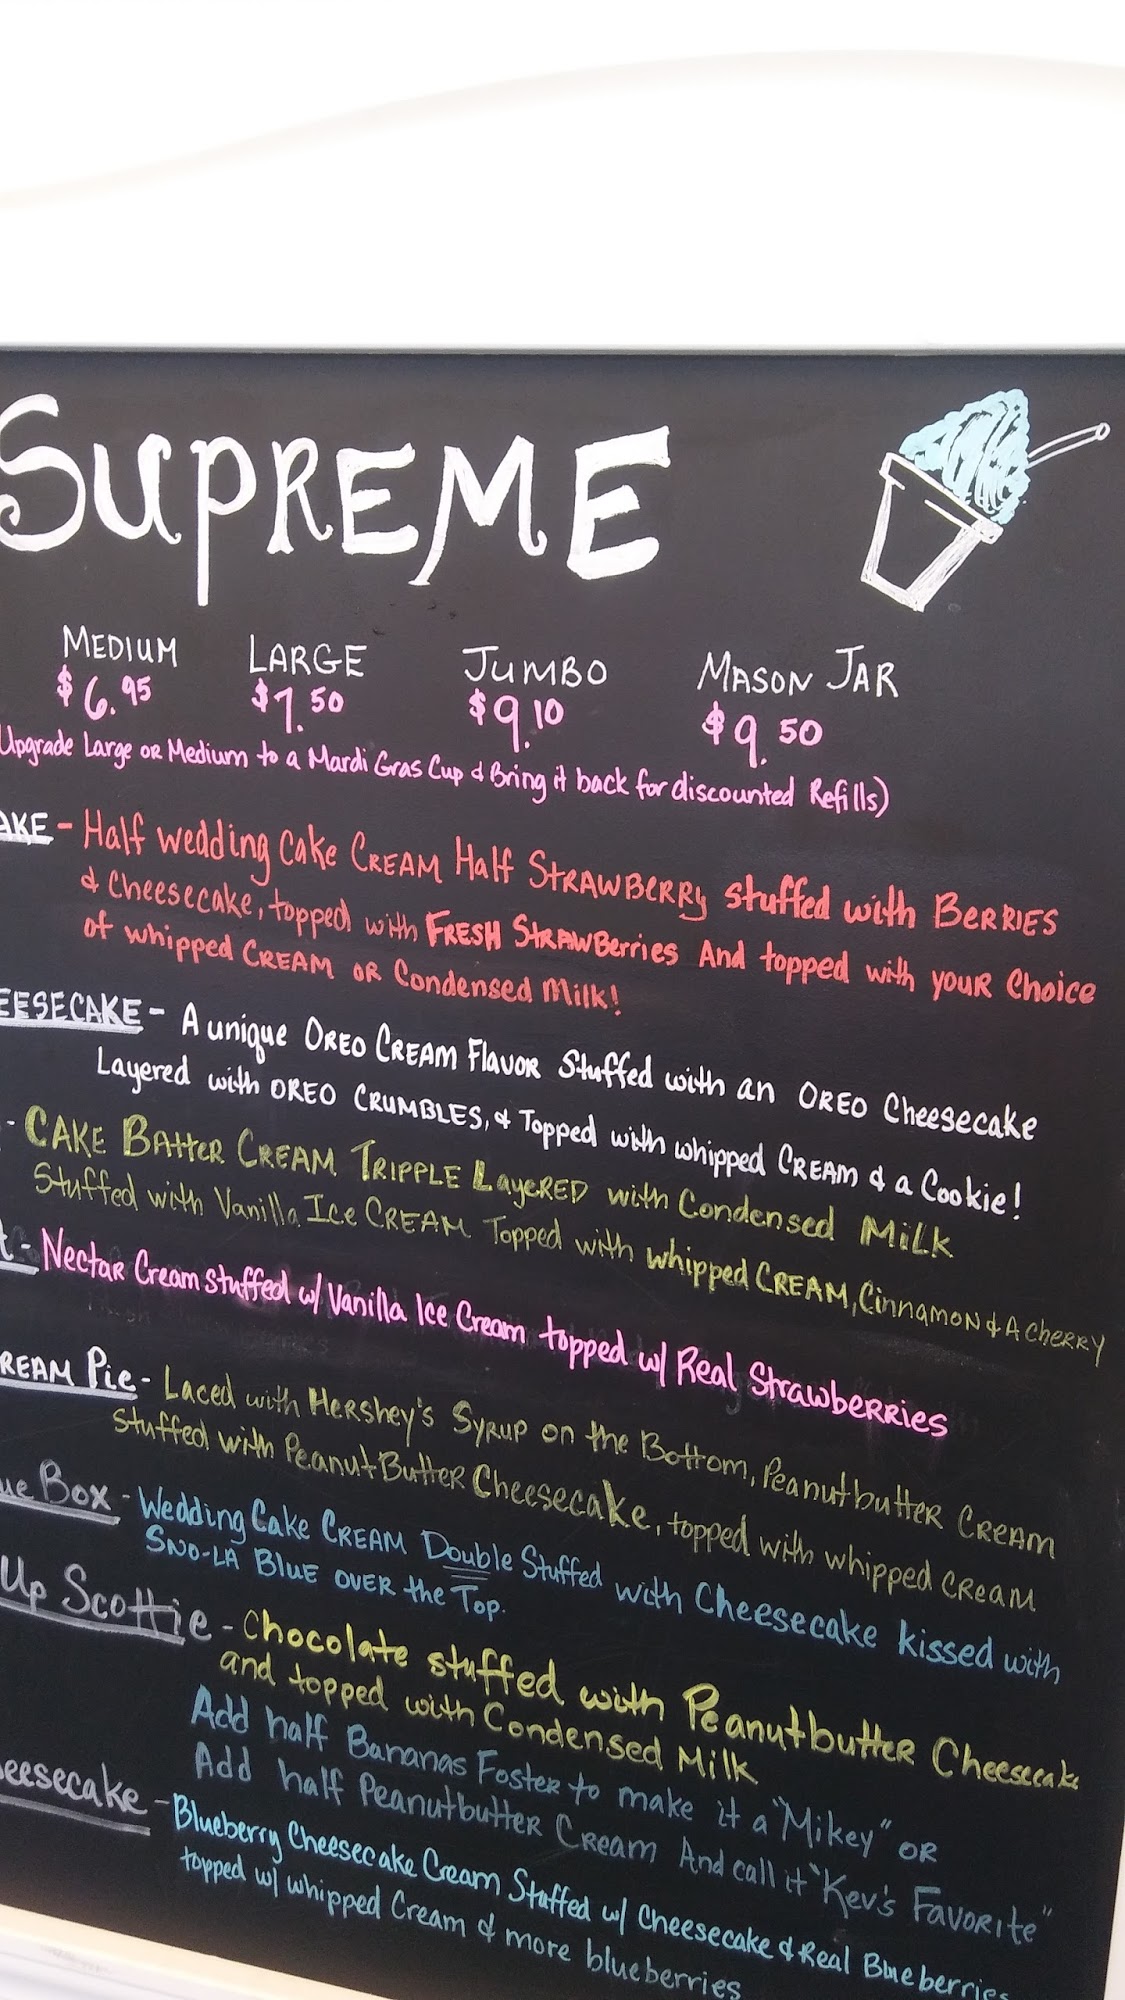 SUPREME
MEDIUM LARGE JUMBO MASON JAR
$6.95 $7.50 $9.10 $9.50
Upgrade Large or Medium to a Mardi Gras Cup & Bring it back for discounted Refills)
AKE - Half wedding Cake CREAM Half STRAWBERRY stuffed with BERRIES
& Cheesecake, topped with FRESH STRAWBerries And topped with your Choice
of whipped CREAM OR Condensed Milk!
EESECAKE - A unique OREO CREAM Flavor Stuffed with an OREO Cheesecake
Layered with OREO CRUMBLES, & Topped with whipped CREAM & a Cookie!
- CAKE BAtteR CREAM TRIPPLE LayeRED with Condensed MiLK
Stuffed with Vanilla Ice CREAM Topped with whipped CREAM, Cinnamon & A CheRRY
t - Nectar Cream stuffed w/ Vanilla Ice Cream topped w/ Real Strawberries
REAM Pie - Laced with Hershey's Syrup on the Bottom, Peanutbutter Cream
Stuffed with Peanut Butter Cheesecake, topped with whipped CReam
ue Box - Wedding Cake CREAM Double Stuffed with Cheesecake kissed with
SNO-LA BLUE OVER the Top.
Up Scottie - Chocolate stuffed with Peanutbutter Cheesecake
and topped with Condensed Milk
Add half Bananas Foster to make it a "Mikey" OR
Add half Peanutbutter Cream And call it "Kev's Favorite"
eesecake - Blueberry Cheesecake Cream Stuffed w/ Cheesecake & Real Blueberries
topped w/ whipped Cream & more blueberries